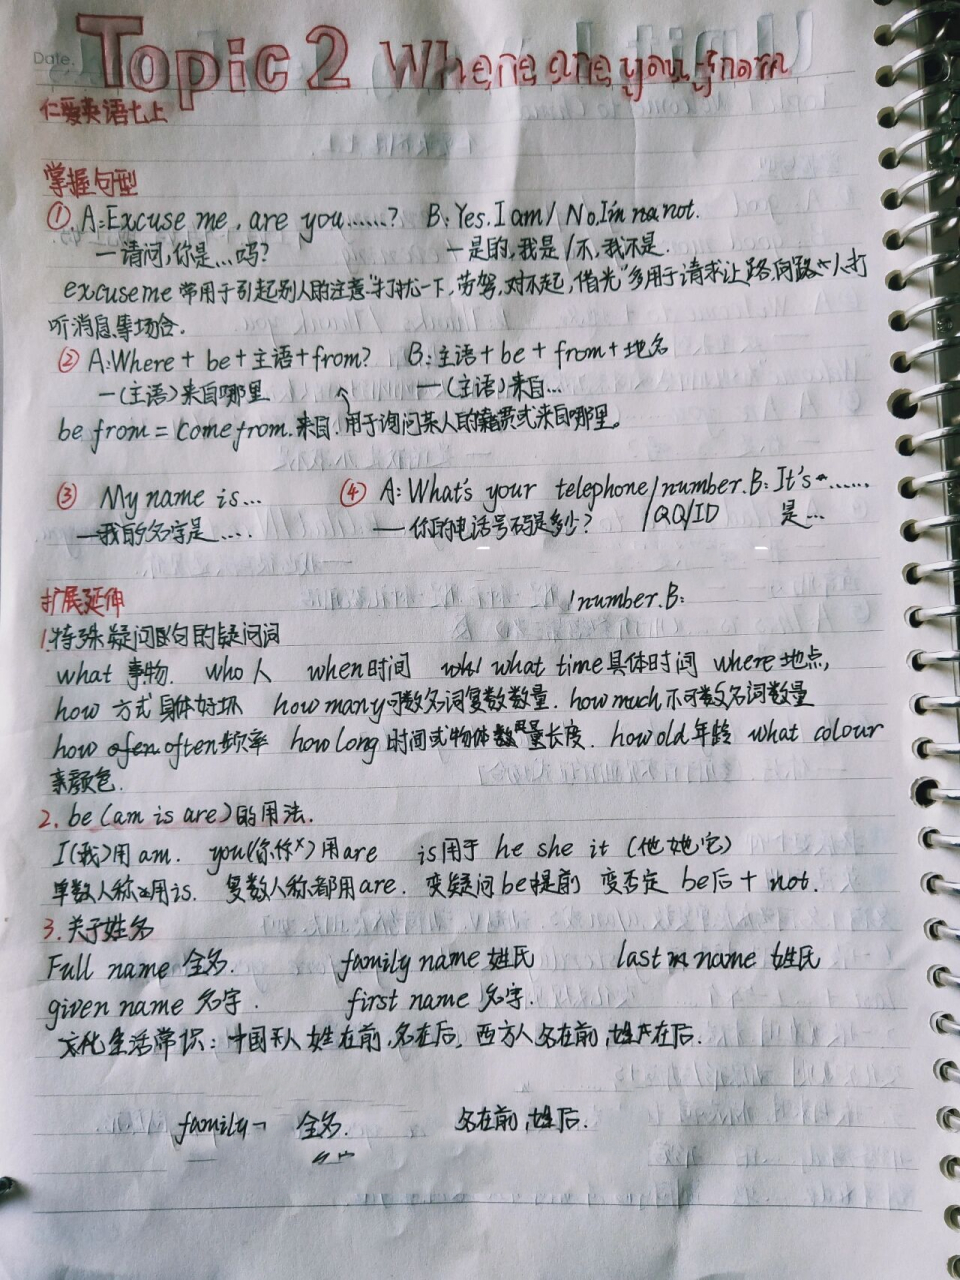 Date.
Topic 2 Where are you from
仁爱英语七上
掌握句型
① A:Excuse me, are you......? B:Yes.I am/ No,I'm not.
—请问,你是...吗? —是的,我是/不,我不是.
excuse me 常用于引起别人的注意"打扰一下,劳驾,对不起,借光"多用于请求让路,问路 人打
听消息等场合.
② A:Where+ be+主语+from? B:主语+be+from+地名
—(主语)来自哪里 —(主语)来自...
be from = come from.来自.用于询问某人的籍贯或来自哪里。
③ My name is... ④ A:What's your telephone/number.B:It's......
—我的名字是.... —你的电话号码是多少? /QQ/ID 是...
扩展延伸 /number.B:
1.特殊疑问句的疑问词
what 事物. who 人 when时间 what time具体时间 where地点,
how 方式身体好坏 how many可数名词复数数量. how much不可数名词数量
how often频率 how long 时间或物体长度. how old年龄 what colour
颜色.
2.be(am is are)的用法.
I(我)用 am. you(你,你们)用are is用于 he she it (他她它)
单数人称用is. 复数人称都用are. 变疑问be提前 变否定 be后+ not.
3.关于姓名
Full name 全名. family name 姓氏 last name 姓氏
given name 名字. first name 名字.
文化生活常识:中国人 姓在前,名在后, 西方人名在前,姓在后.
family 全名. 名在前,姓后.